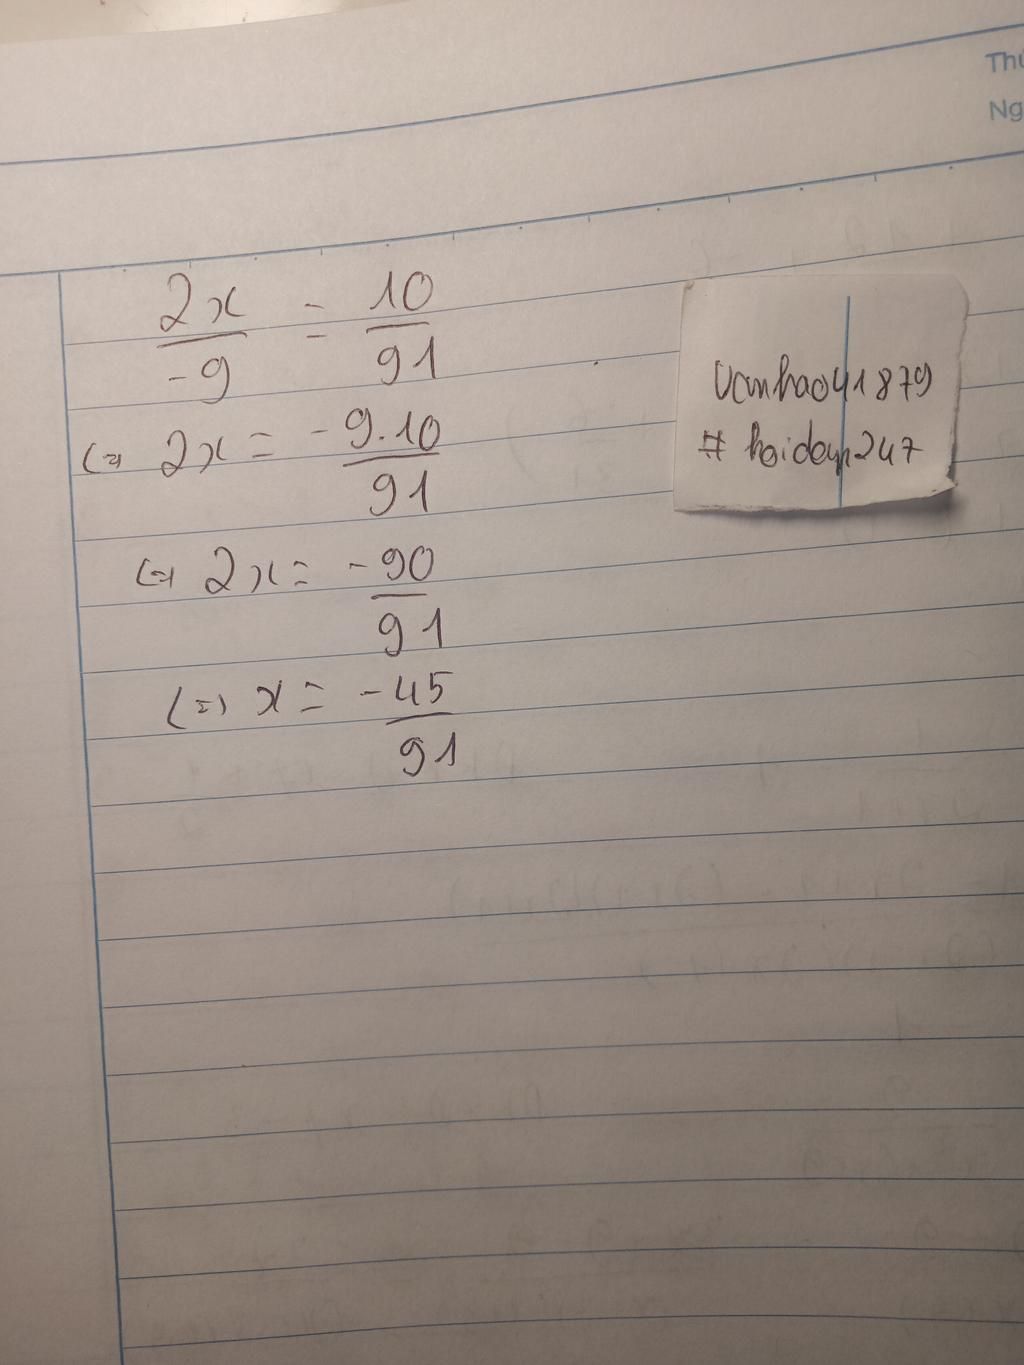 Thứ
Ng
2x/-9 = 10/91
<=> 2x = -9.10/91
<=> 2x = -90/91
<=> x = -45/91
Vanhao41879
# hoidap247